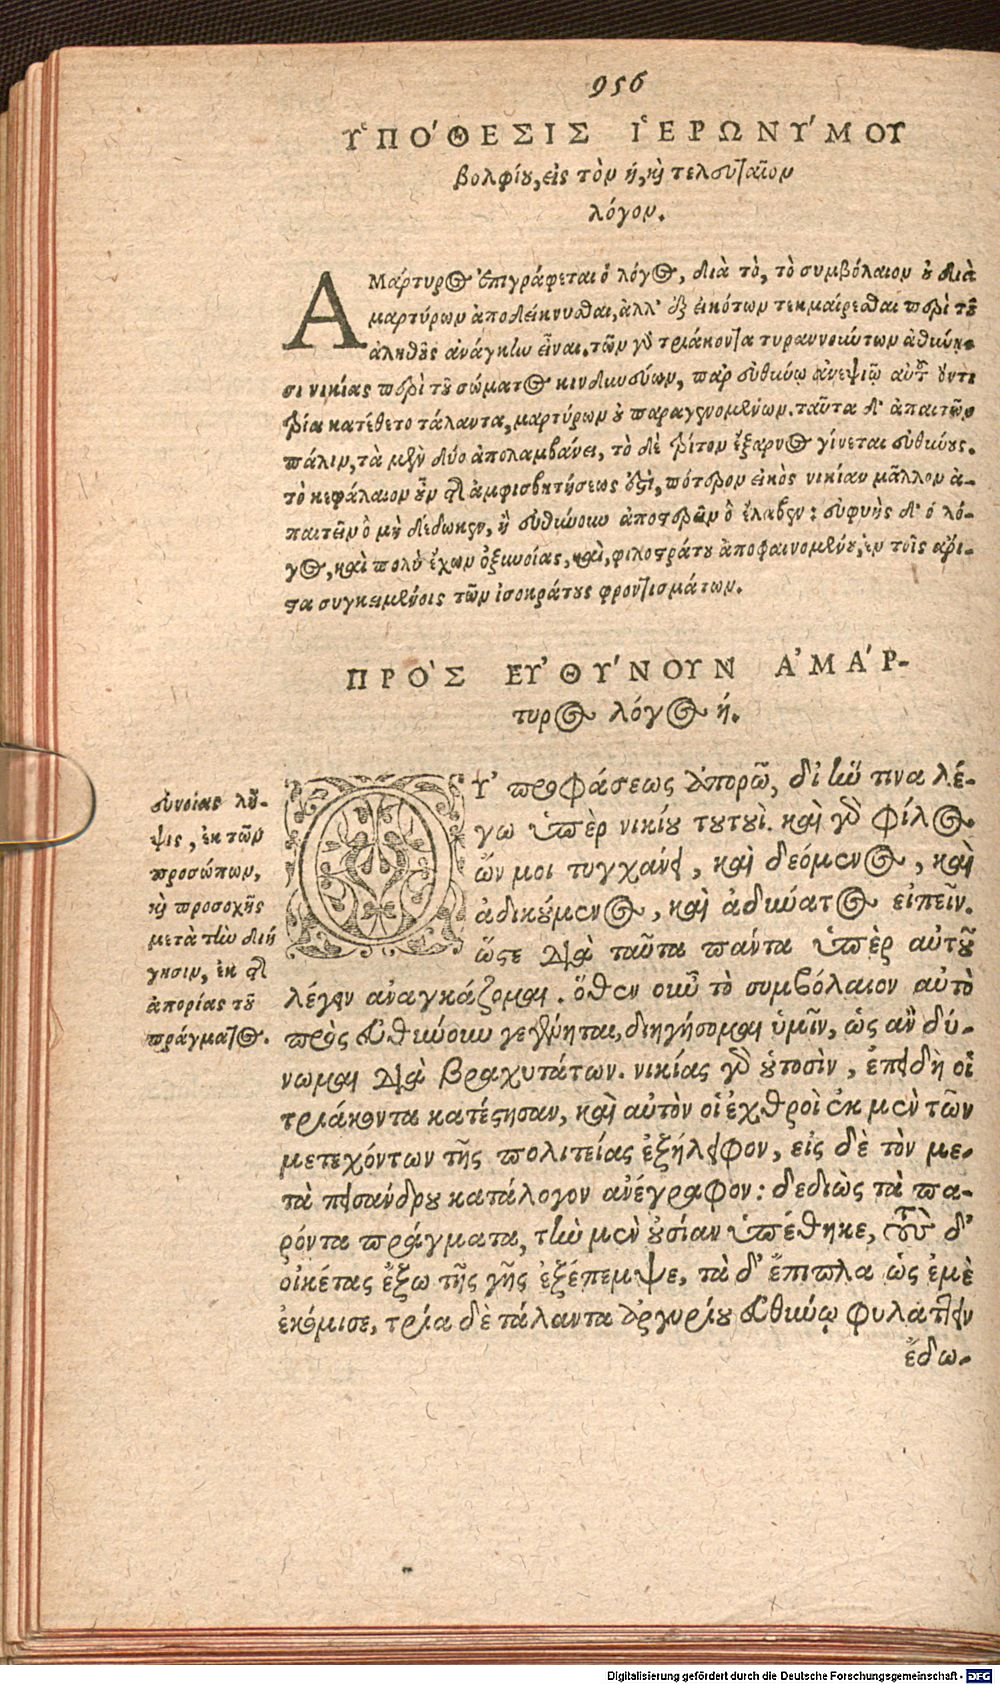 956
ΥΠΟ΄ΘΕΣΙΣ ἹΕΡΩΝΥ΄ΜΟΥ
βολφίου, εἰς τὸν ή, καὶ τελευταῖον
λόγον.
ΑΜάρτυρος ἐπιγράφεται ὁ λόγος, διὰ τὸ, τὸ συμβόλαιον οὐ διὰ
μαρτύρων ἀποδείκνυσθαι, ἀλλ' ἐξ εἰκότων τεκμαίρεσθαι περὶ τοῦ
ἀληθοῦς ἀνάγκην εἶναι. τῶν γὰρ τριάκοντα τυραννούντων ἀθήνη-
σι νικίας περὶ τοῦ σώματος κινδυνεύων, παρ' εὐθύνῳ ἀνεψιῷ αὐτοῦ ὄντι
τρία κατέθετο τάλαντα, μαρτύρων οὐ παραγενομένων. ταῦτα δ' ἀπαιτῶν
πάλιν, τὰ μὲν δύο ἀπολαμβάνει, τὸ δὲ τρίτον ἔξαρνος γίνεται εὐθύνους.
τὸ κεφάλαιον οὖν τῆς ἀμφισβητήσεως ἐστὶ, πότερον εἰκὸς νικίαν μᾶλλον ἀ-
παιτεῖν ὃ μὴ δέδωκεν, ἢ εὐθύνουν ἀποστερεῖν ὃ ἔλαβεν: εὐφυὴς δ' ὁ λό-
γος, καὶ πολὺ ἔχων ὀξυνοίας, καὶ, φιλοστράτου ἀποφαινομένου, ἐν τοῖς ἄρι-
στα συγκειμένοις τῶν ἰσοκράτους φροντισμάτων.
ΠΡΟ`Σ ΕΥ᾿ΘΥ΄ΝΟΥΝ Α᾿ΜΑ΄Ρ-
τυρος λόγος ή.
εὐνοίας λῆ-
ψις, ἐκ τῶν
προσώπων,
καὶ προσοχῆς
μετὰ τὴν διή
γησιν, ἐκ τῆς
ἀπορίας τοῦ
πράγματος.
ΟΥ᾿ προφάσεως ἀπορῶ, δι' ἥν τινα λέ-
γω ὑπὲρ νικίου τουτουί. καὶ γὰρ φίλος
ὤν μοι τυγχάνει, καὶ δεόμενος, καὶ
ἀδικούμενος, καὶ ἀδύνατος εἰπεῖν.
ὥστε διὰ ταῦτα πάντα ὑπὲρ αὐτοῦ
λέγειν ἀναγκάζομαι. ὅθεν οὖν τὸ συμβόλαιον αὐτὸ
πρὸς εὐθύνουν γεγένηται, διηγήσομαι ὑμῖν, ὡς ἂν δύ-
νωμαι διὰ βραχυτάτων. νικίας γὰρ οὑτοσὶν, ἐπειδὴ οἱ
τριάκοντα κατέστησαν, καὶ αὐτὸν οἱ ἐχθροὶ ἐκ μὲν τῶν
μετεχόντων τῆς πολιτείας ἐξήλειφον, εἰς δὲ τὸν με-
τὰ πεισάνδρου κατάλογον ἀνέγραφον: δεδιὼς τὰ πα-
ρόντα πράγματα, τὴν μὲν οὐσίαν ὑπέθηκε, τοὺς δ'
οἰκέτας ἔξω τῆς γῆς ἐξέπεμψε, τὰ δ' ἔπιπλα ὡς ἐμὲ
ἐκόμισε, τρία δὲ τάλαντα ἀργυρίου εὐθύνῳ φυλάττειν
ἔδω-
Digitalisierung gefördert durch die Deutsche Forschungsgemeinschaft - DFG